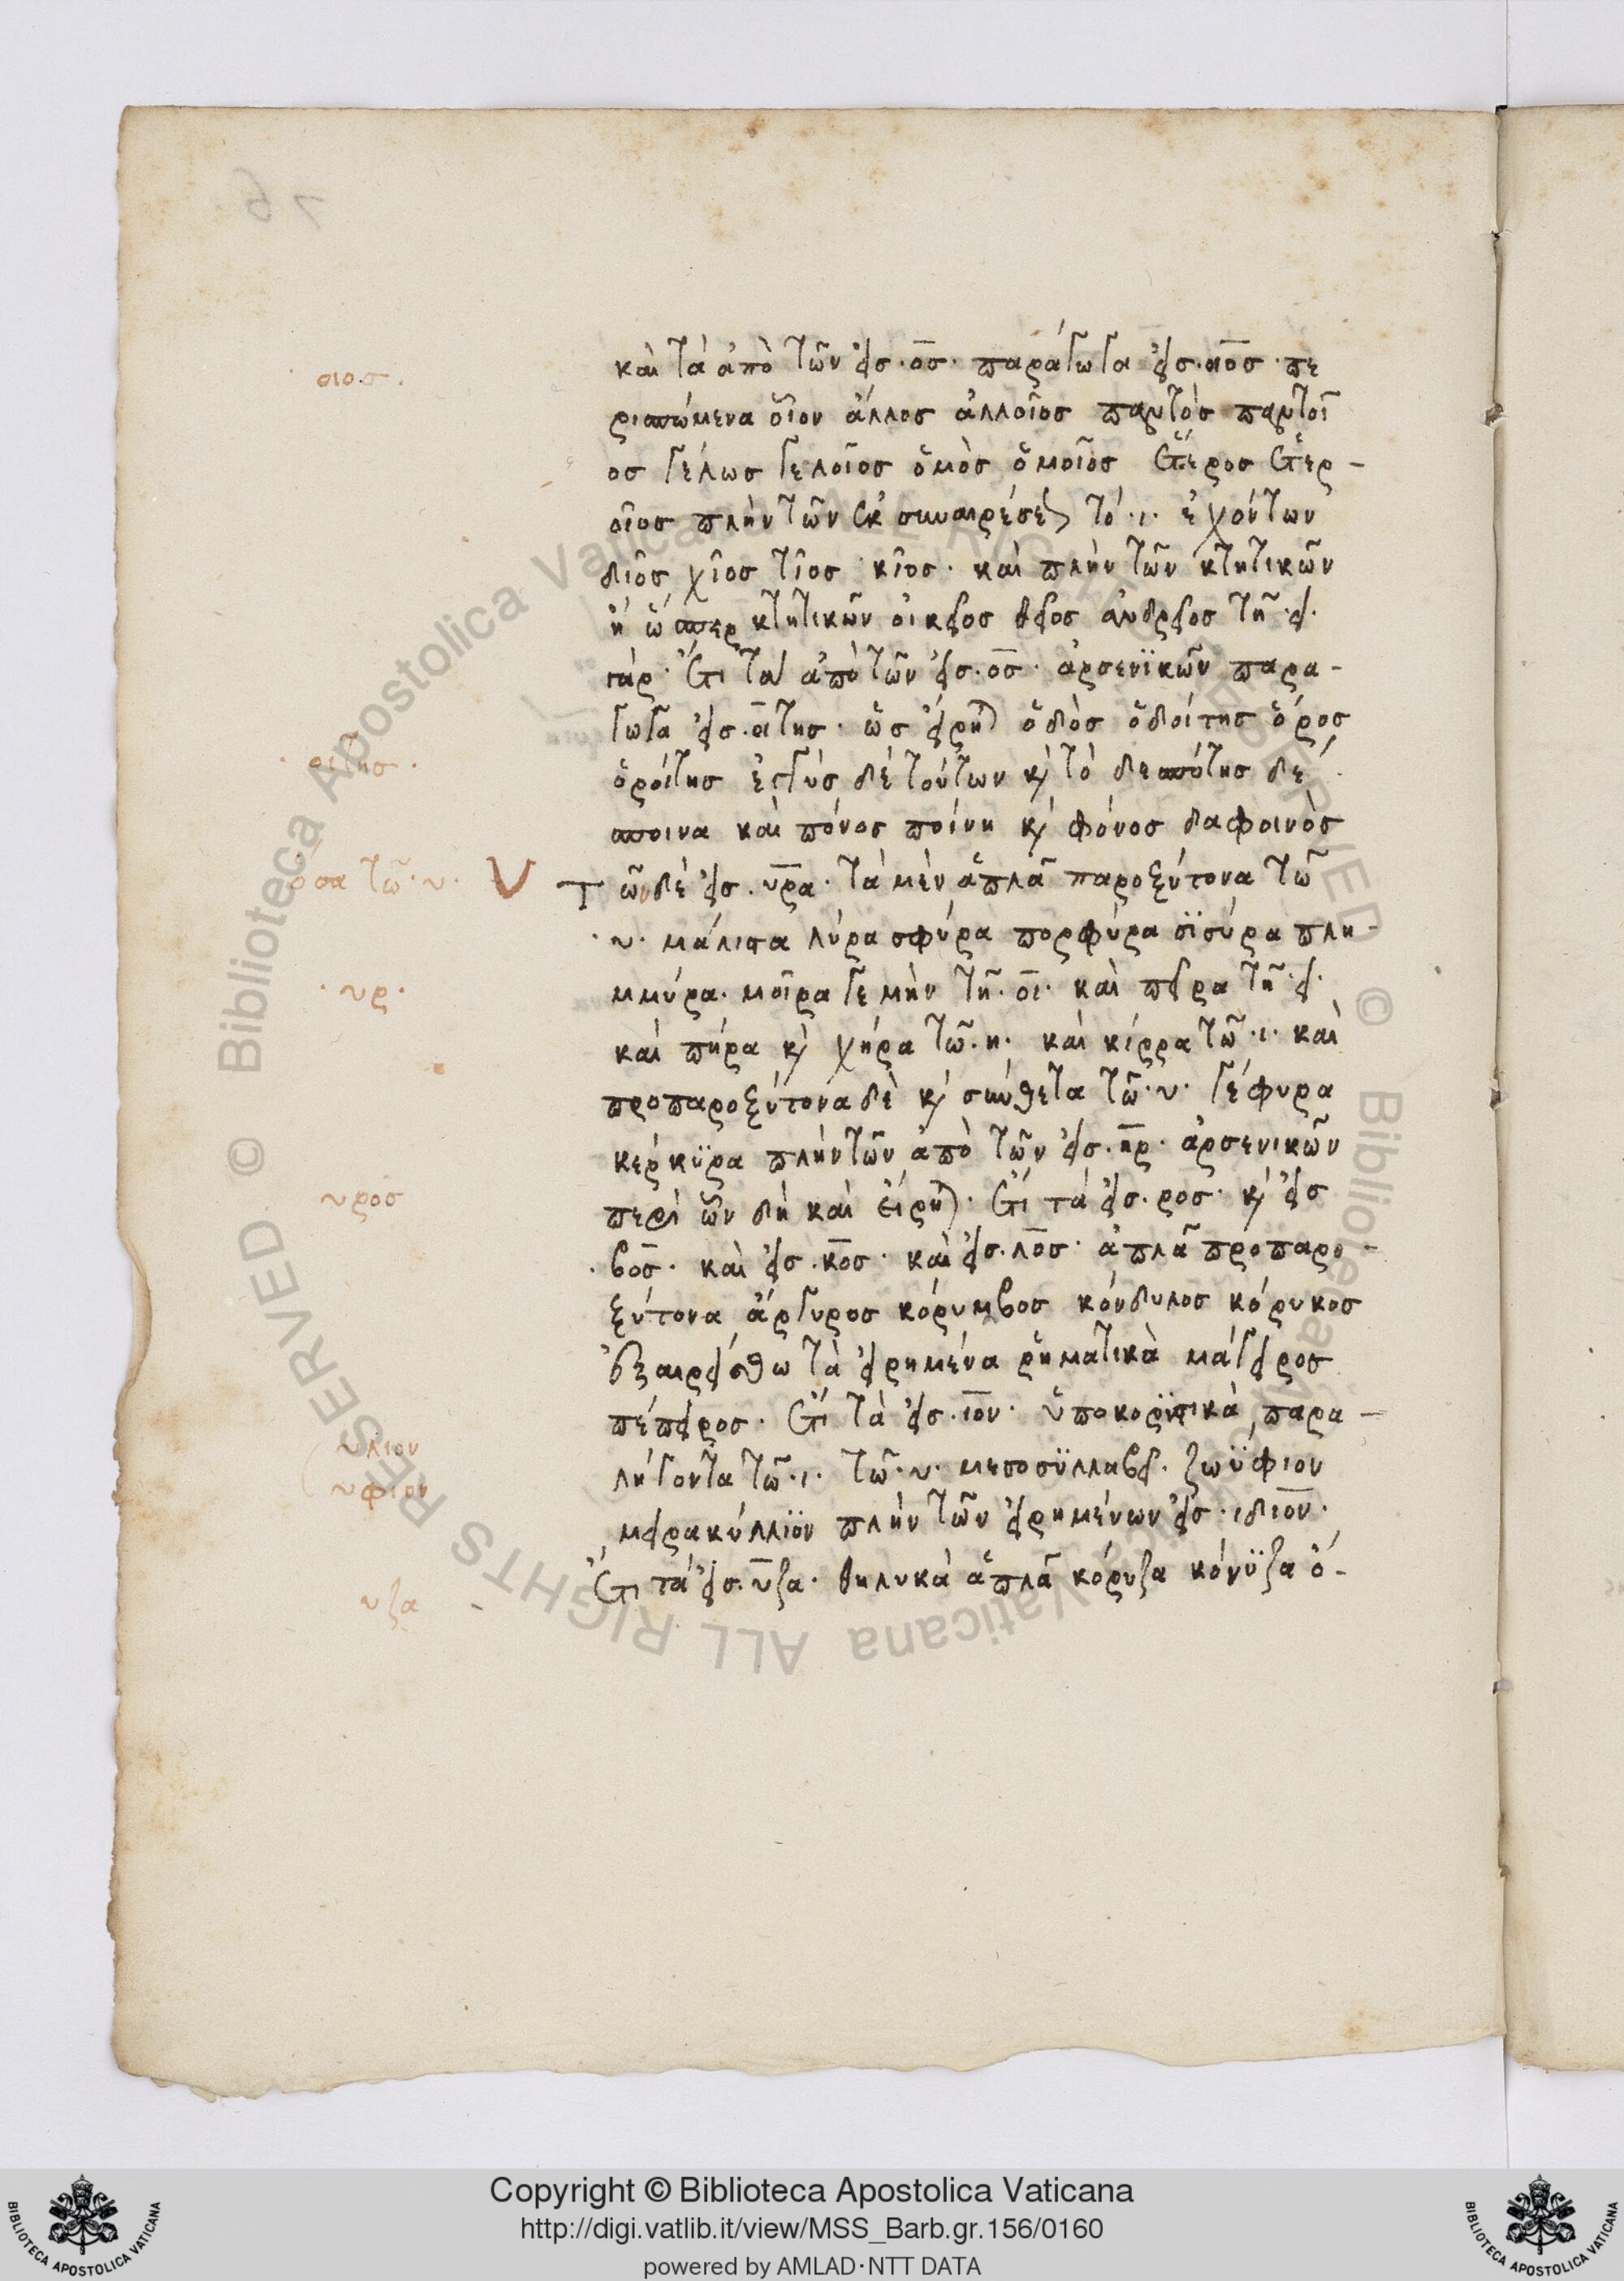 καὶ τὰ ἀπὸ τῶν εἰς ·ος· παράγωγα εἰς ·οιος· πε
οιος
ρισπώμενα οἷον ἄλλος ἀλλοῖος παντὸς παντοῖ
ος γέλως γελοῖος ὁμὸς ὁμοῖος ἕτερος ἑτερ-
οῖος πλὴν τῶν ἐκ συναιρέσεως τό ·ι· ἐχόντων
δῖος χῖος τῖος κῖος· καὶ πλὴν τῶν κτητικῶν
ἢ ὥσπερ κτητικῶν οἰκεῖος θεῖος ἀνδρεῖος τῇ ·ει·
γάρ· Ἔτι τὰ ἀπὸ τῶν εἰς ·ος· ἀρσενϊκῶν παρα-
γωγα εἰς ·οιτης· ὡς εἴρηται ὁδὸς ὁδοίτης ὄρος
οιτης
ὀροίτης ἐγγύς δὲ τούτων κὶ τὸ δεσπότης δέ
σποινα καὶ πόνος ποίνη κὶ φόνος δαφοινὸς
ὅσα τῶ ·υ·
Τῶν δὲ εἰς ·υρα· τὰ μὲν ἁπλᾶ παροξύτονα τῶ
·υ· μάλιστα λύρα σφύρα πορφύρα σϊσύρα πλη-
υρ
μμύρα· μοῖρα γε μὴν τῇ ·οι· καὶ πεῖρα τῇ ·ει·
καὶ πήρα κὶ χήρα τῶ ·η· καὶ κίρρα τῶ ·ι· καὶ
προπαροξύτονα δὲ κὶ σύνθετα τῶ ·υ· γέφυρα
κέρκϋρα πλὴν τῶν ἀπὸ τῶν εἰς ·ηρ· ἀρσενικῶν
υρος
περὶ ὧν δὴ καὶ εἴρηται· Ἔτι τά εἰς ·ρος· κὶ εἰς
·βος· καὶ εἰς ·κος· καὶ εἰς ·λος· ἁπλᾶ προπαρο-
ξύτονα ἄργυρος κόρυμβος κόνδυλος κόρυκος
ἐξαιρείσθω τὰ εἰρημένα ῥηματικὰ μάγειρος
πέπειρος· Ἔτι τὰ εἰς ·ιον· ὑποκορϊστικὰ παρα-
υλιον
λήγοντα τῶ ·ι· τῶ ·υ· μεσοσϋλλαβεῖ· ζωΰφιον
υφιον
μειρακύλλϊον πλὴν τῶν εἰρημένων εἰς ·ιδιον·
Ἔτι τὰ εἰς ·υζα· θηλυκὰ ἁπλᾶ κόρυζα κόνϋζα ὄ-
υζα
Copyright © Biblioteca Apostolica Vaticana
http://digi.vatlib.it/view/MSS_Barb.gr.156/0160
powered by AMLAD·NTT DATA